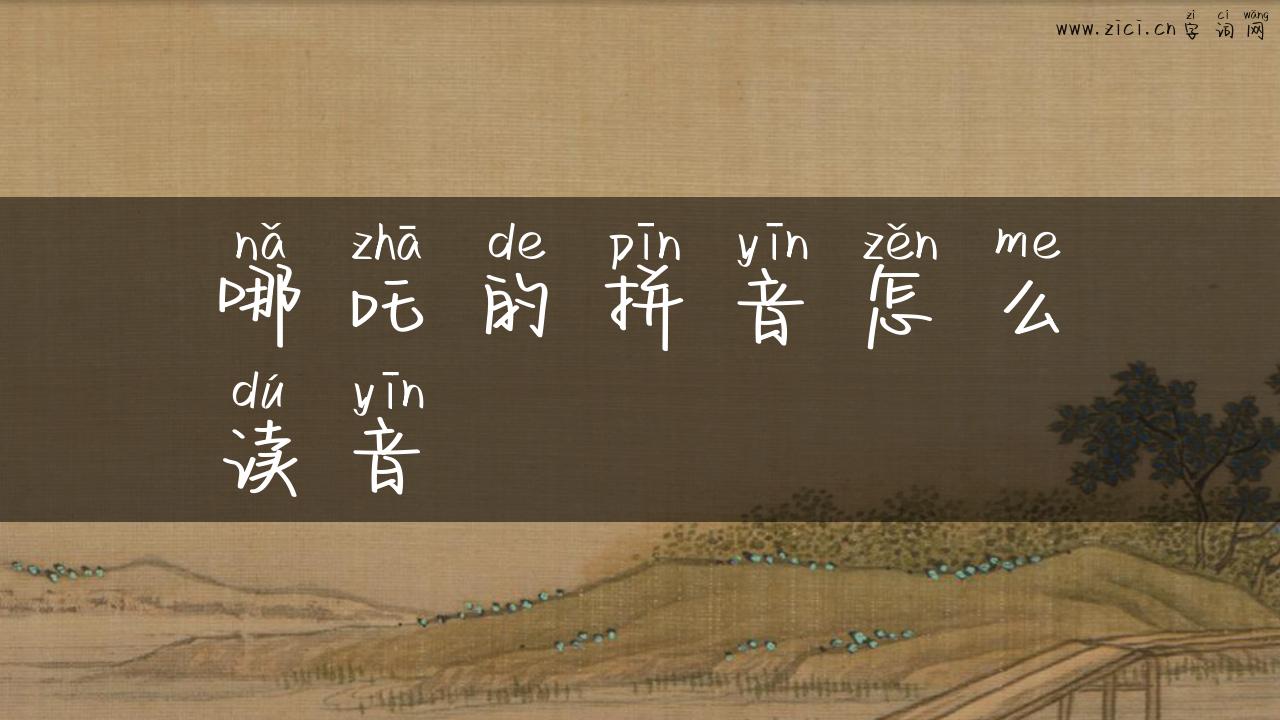 zì cí wǎng
www.zici.cn 字 词 网
nǎ zhā de pīn yīn zěn me
哪 吒 的 拼 音 怎 么
dú yīn
读 音